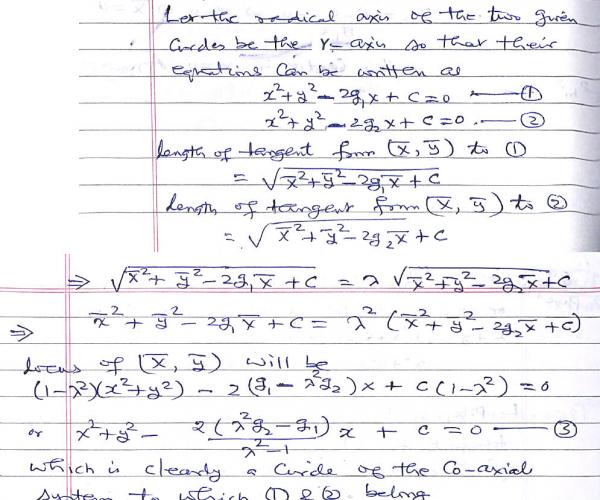 Let the radical axis of the two given
Circles be the Y-axis so that their
equations can be written as
x²+y²-2g₁x+c=0 —①
x²+y²-2g₂x+c=0 —②
length of tangent from (x̄, ȳ) to ①
= √x̄²+ȳ²-2g₁x̄+c
length of tangent from (x̄, ȳ) to ②
= √x̄²+ȳ²-2g₂x̄+c
⇒ √x̄²+ȳ²-2g₁x̄+c = λ √x̄²+ȳ²-2g₂x̄+c
⇒ x̄²+ȳ²-2g₁x̄+c = λ² (x̄²+ȳ²-2g₂x̄+c)
locus of (x̄, ȳ) will be
(1-λ²)(x²+y²) - 2(g₁-λ²g₂)x + c(1-λ²) = 0
or x²+y² - 2(λ²g₂-g₁)/λ²-1 x + c = 0 —③
which is clearly a Circle of the Co-axial
system to which ① & ② belong